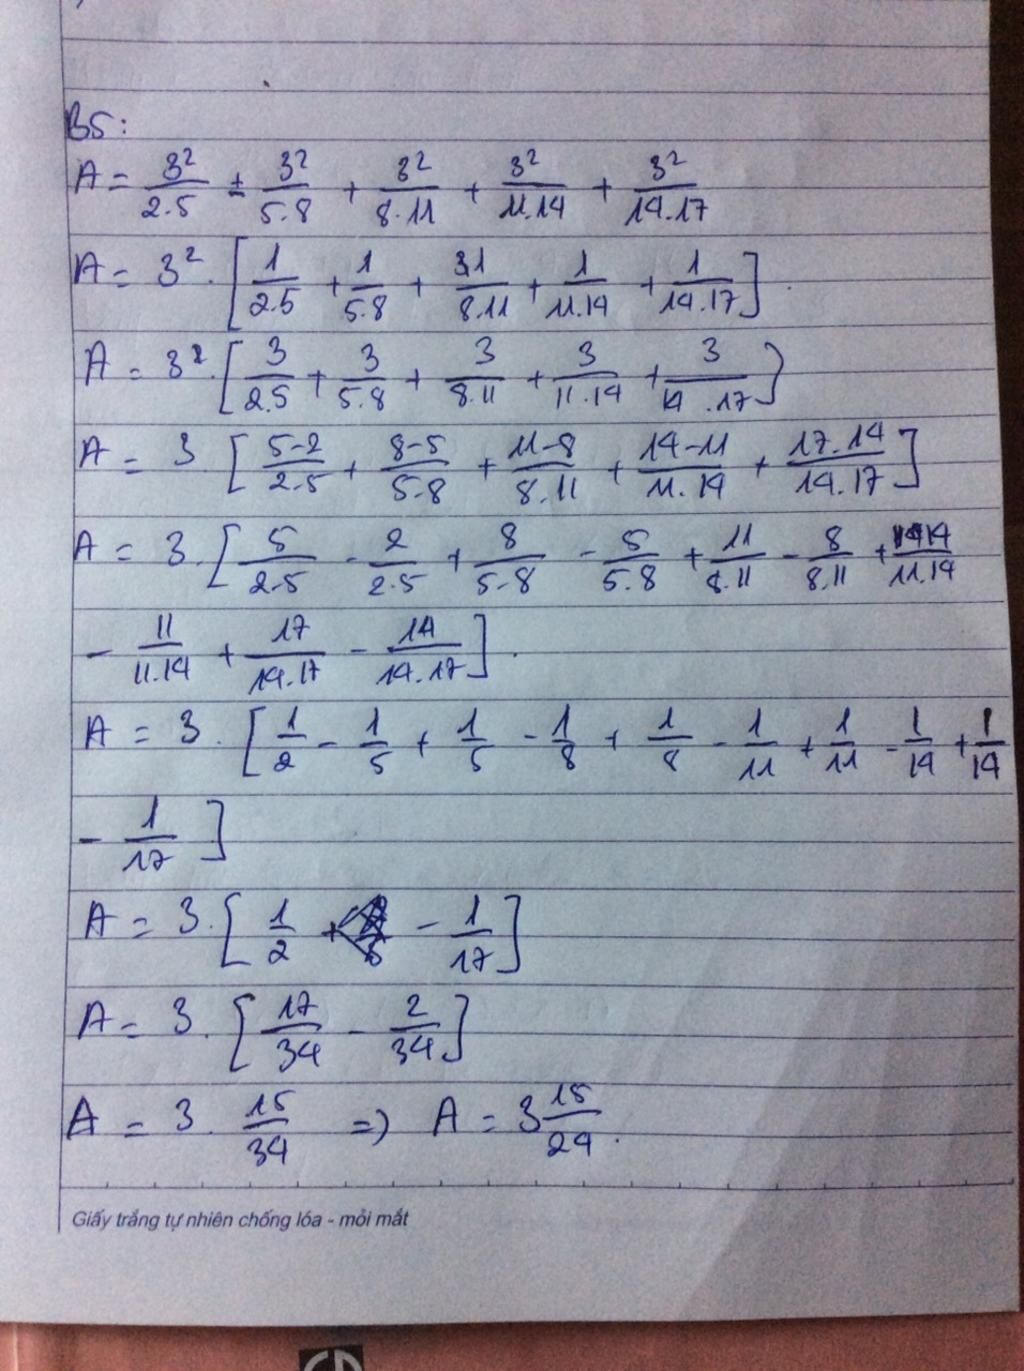 B5:
A = 3²/2.5 ± 3²/5.8 + 3²/8.11 + 3²/11.14 + 3²/14.17
A = 3² . [1/2.5 + 1/5.8 + 31/8.11 + 1/11.14 + 1/14.17] .
A = 3² . [3/2.5 + 3/5.8 + 3/8.11 + 3/11.14 + 3/14.17]
A = 3 [5-2/2.5 + 8-5/5.8 + 11-8/8.11 + 14-11/11.14 + 17.14/14.17]
A = 3 . [5/2.5 - 2/2.5 + 8/5.8 - 5/5.8 + 11/8.11 - 8/8.11 + 14/11.14
- 11/11.14 + 17/14.17 - 14/14.17] .
A = 3 . [1/2 - 1/5 + 1/5 - 1/8 + 1/8 - 1/11 + 1/11 - 1/14 + 1/14
- 1/17]
A = 3 . [1/2 - 1/17]
A = 3 . [17/34 - 2/34]
A = 3 . 15/34 => A = 3 15/24 .
Giấy trắng tự nhiên chống lóa - mỏi mắt